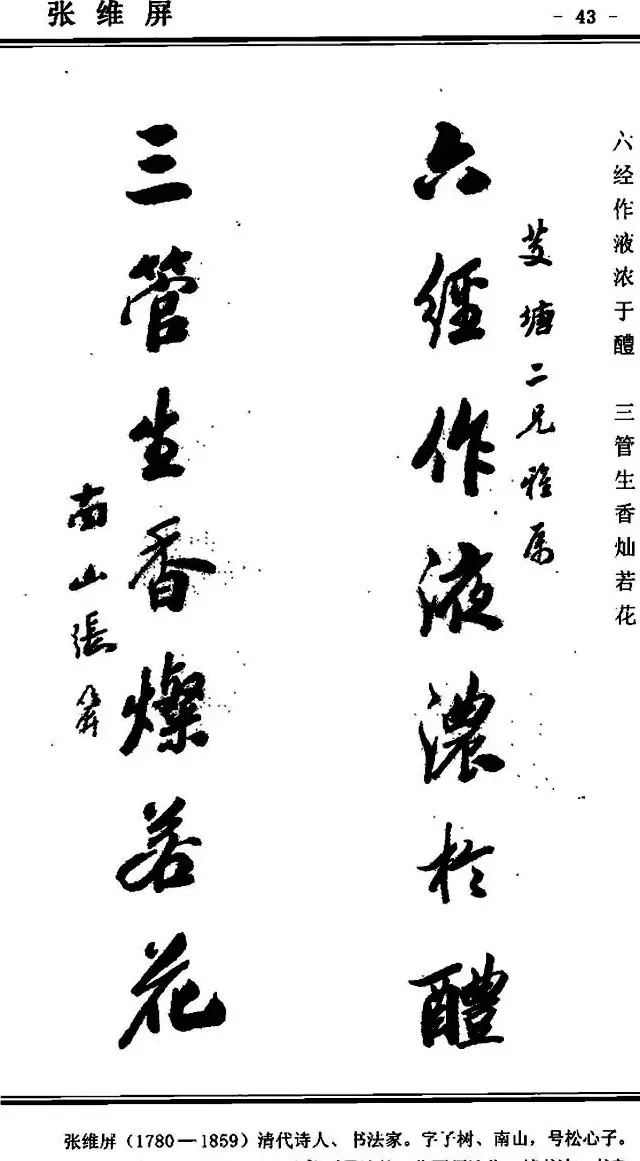 张维屏
- 43 -
六经作液浓于醴 三管生香灿若花
六經作液濃於醴
二兄雅属
三管生香燦若花
南山張
张维屏（1780—1859）清代诗人、书法家。字子树、南山，号松心子。